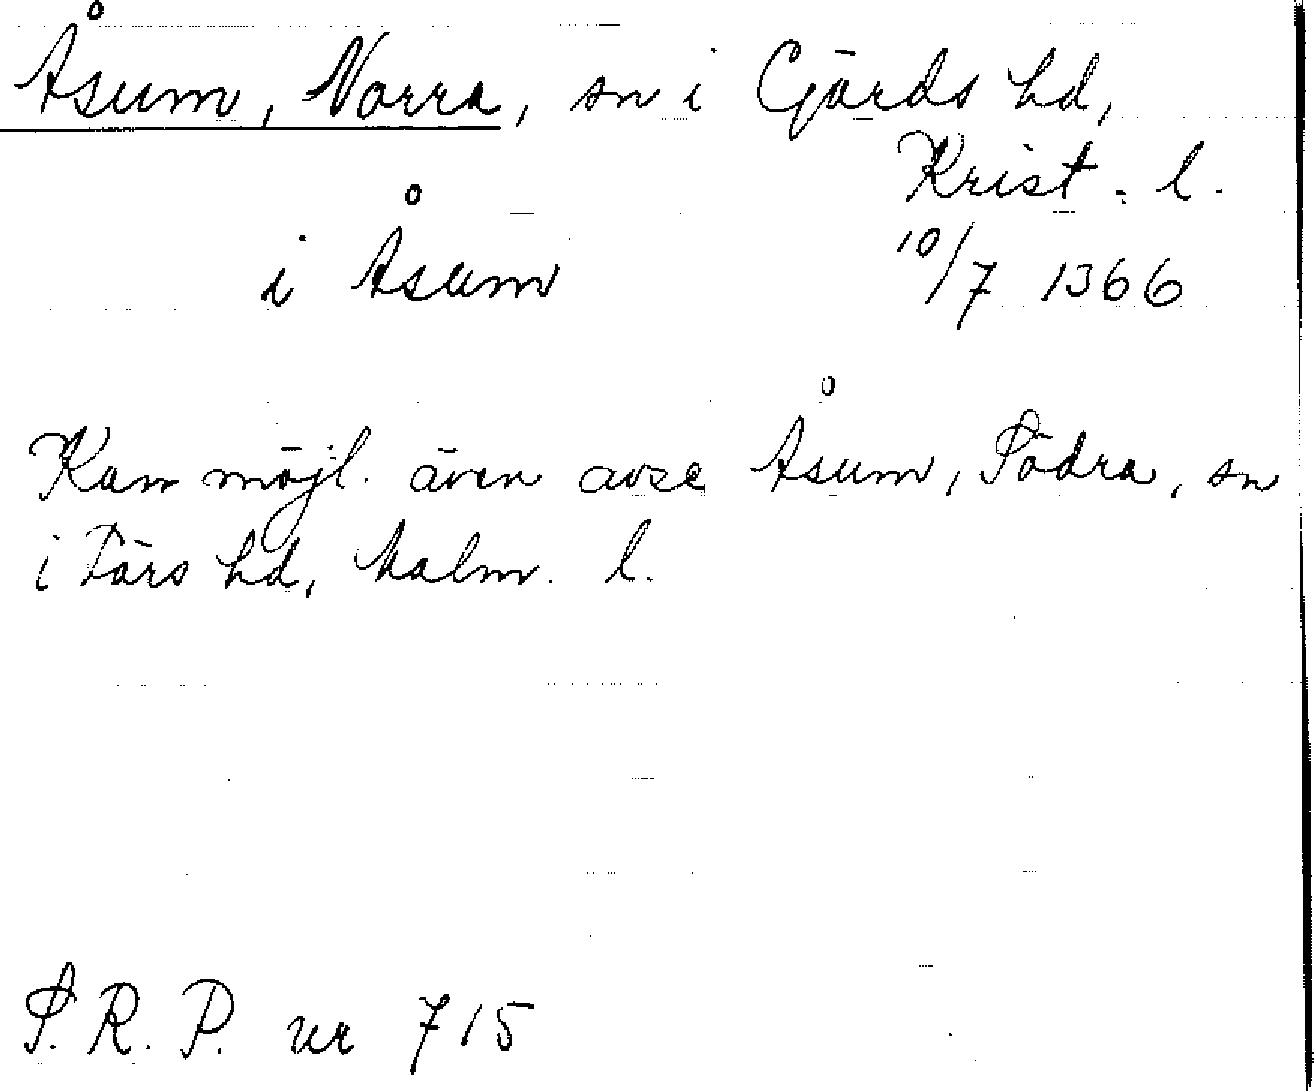 Åsum, Norra, sn i Gärds hd,
Krist. l.
i Åsum 10/7 1366
Kan möjl. även avse Åsum, Södra, sn
i Färs hd, Malm. l.
S. R. P. nr 715